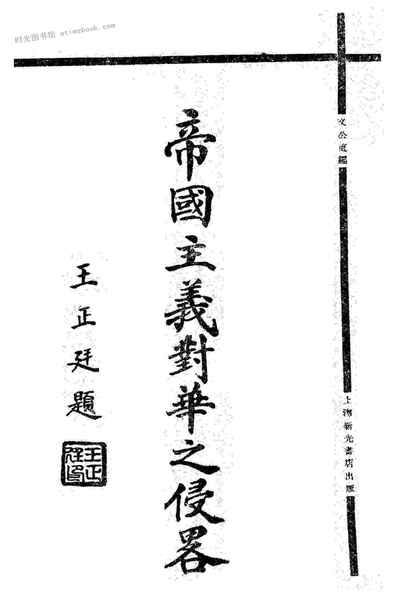 时光图书馆 etimebook.com
文公直編
上海新光書店出版
帝國主義對華之侵畧
王正廷題